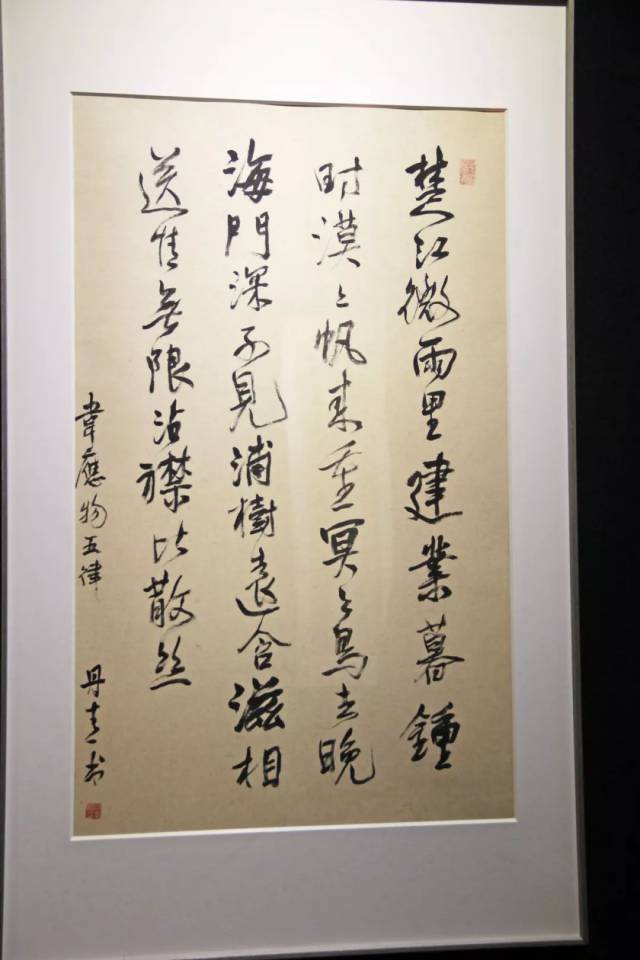 楚江微雨里建業暮鍾
時漠〻帆来重冥〻鳥去晚
海門深不見浦樹遠含滋相
送情無限沾襟比散絲
韋應物五律
丹青书